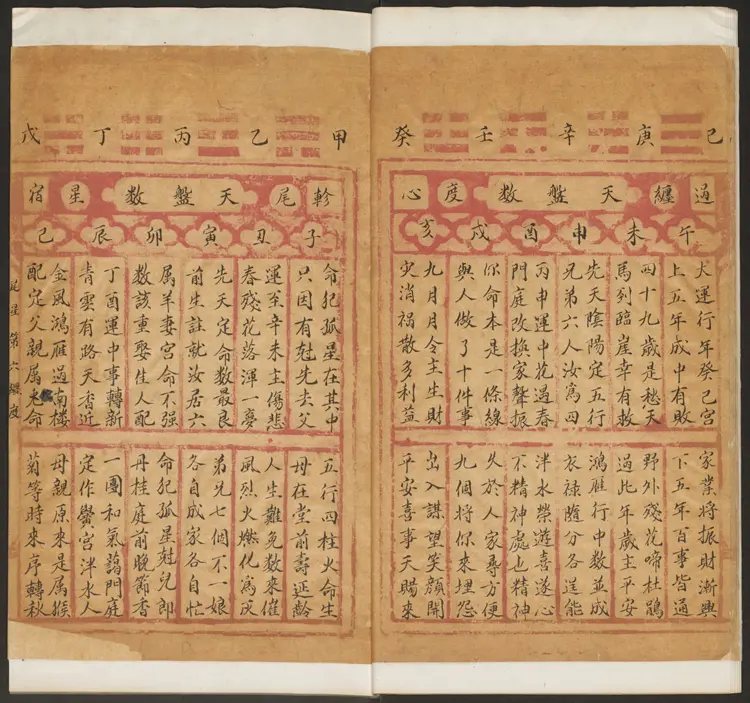 己庚辛壬癸
過纏天盤數度心
午未申酉戌亥
大運行年癸己宮
上五年成中有敗
四十九歲是愁天
馬到臨崖幸有救
先天陰陽定五行
兄弟六人汝爲四
丙申運中花遇春
門庭改換家聲振
你命本是一條線
與人做了十件事
九月月令主生財
灾消禍散多利益
家業將振財漸興
下五年百事皆通
野外殘花啼杜鵑
過此年歲主平安
鴻雁行中數並成
衣祿隨分各逞能
泮水榮遊喜遂心
不精神處也精神
久於人家尋方便
九個將你來埋怨
出入謀望笑顏開
平安喜事天賜來
甲乙丙丁戊
軫尾天盤數星宿
子丑寅卯辰己
命犯孤星在其中
只因有尅先去父
運至辛未主傷悲
春殘花落渾一夢
先天定命數最良
前生註就汝居六
属羊妻宮命不强
數該重娶佳人配
丁酉運中事轉新
青雲有路天香近
金風鴻雁過南樓
配定父親属火命
五行四柱火命生
母在堂前壽延齡
人生難免數來催
風烈火燃化爲灰
弟兄七個不一娘
各自成家各自忙
命犯孤星尅兒郎
丹桂庭前晚節香
一團和氣藹門庭
定作黌宮泮水人
母親原來是属猴
菊等時來序轉秋
尾星第六纏度